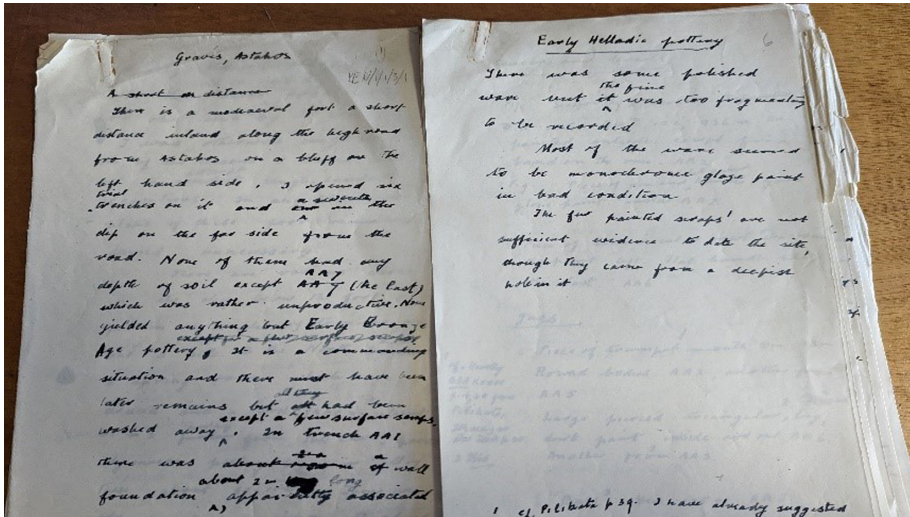 Gravis, Astakos
A short distance
There is a mediaeval fort a short
distance inland along the high road
from Astakos on a bluff on the
left hand side. I opened six
trial
trenches on it and a seventh in the
dip on the far side from the
road. None of them had any
AA7
depth of soil except AA7 (the last)
which was rather unproductive. None
yielded anything but Early Bronze
except for a few surface scraps
Age pottery. It is a commanding
situation and there must have been
all they
later remains but had been
except a few surface scraps.
washed away. In trench AA1
there was about a of wall
about 2 m long
foundation associated
Early Helladic pottery
6
There was some polished
the fine
ware but it was too fragmentary
to be recorded
Most of the ware seemed
to be monochrome glaze paint
in bad condition
The few painted scraps¹ are not
sufficient evidence to date the site,
though they came from a deepish
hole in it
1 cf. Pilikata p 39. I have already suggested